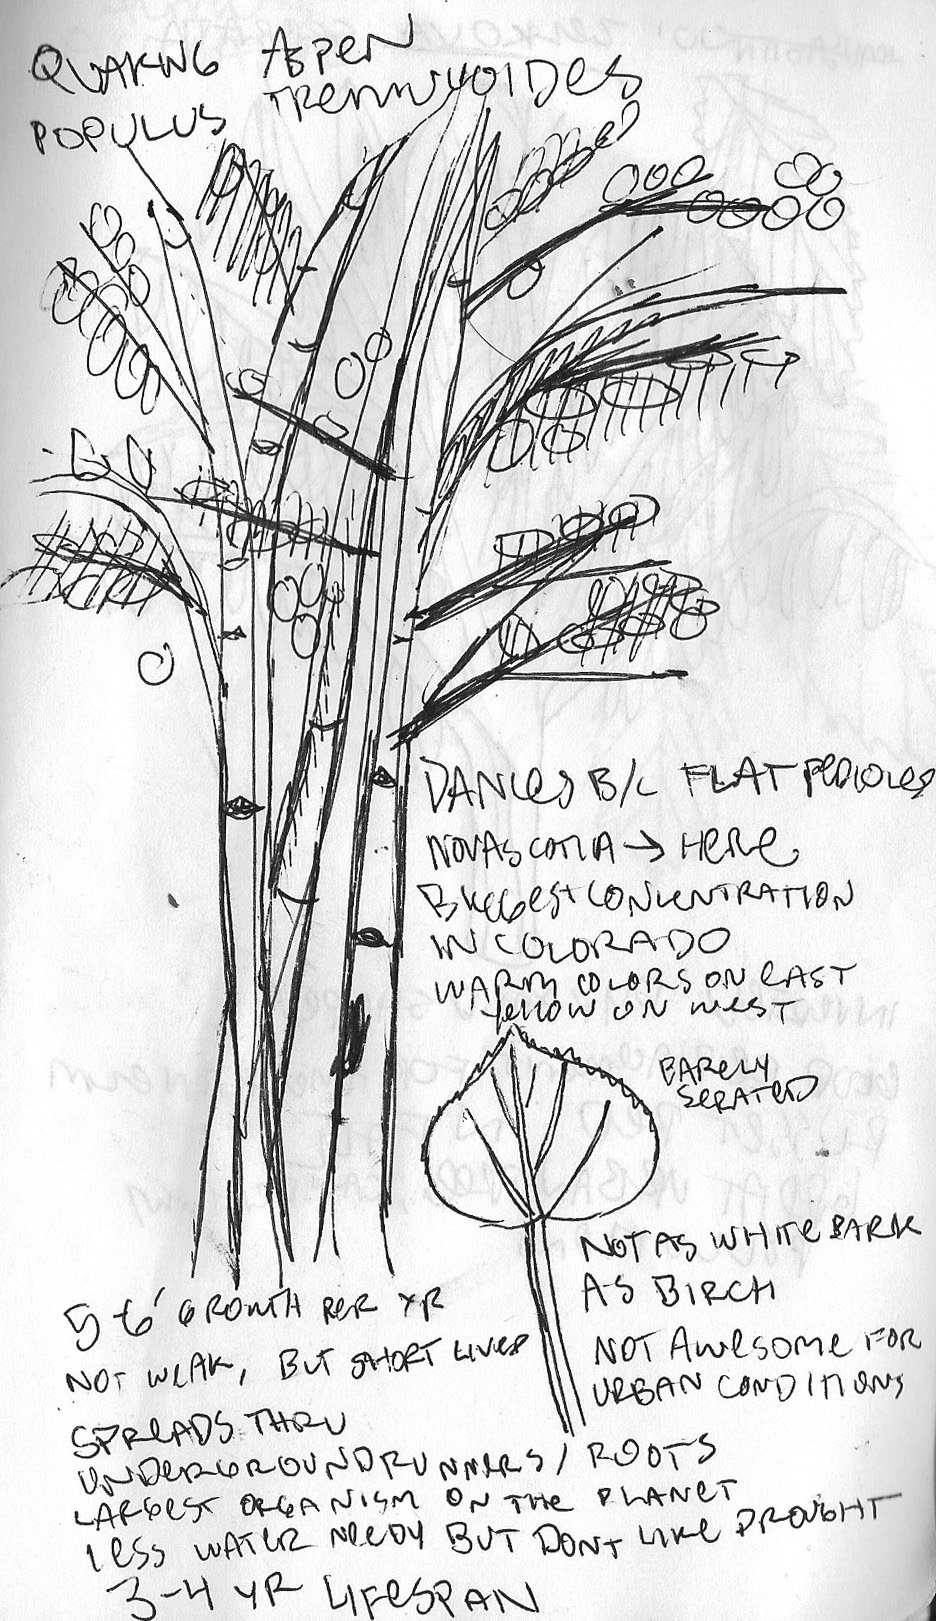 QUAKING ASPEN
POPULUS TREMNUYOIDES
DANCES B/C FLAT PEDIOLES
NOVA SCOTIA → HERE
BIGGEST CONCENTRATION
IN COLORADO
WARM COLORS ON EAST
YELLOW ON WEST
BARELY
SERATED
NOT AS WHITE BARK
AS BIRCH
NOT AWESOME FOR
URBAN CONDITIONS
5-6' GROWTH PER YR
NOT WEAK, BUT SHORT LIVED
SPREADS THRU
UNDERGROUND RUNNERS / ROOTS
LARGEST ORGANISM ON THE PLANET
LESS WATER NEEDY BUT DONT LIKE DROUGHT
3-4 YR LIFESPAN